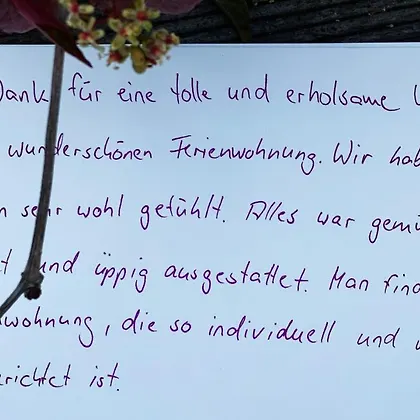 Dank für eine tolle und erholsame
wunderschönen Ferienwohnung. Wir hab
n sehr wohl gefühlt. Alles war gemü
t und üppig ausgestattet. Man find
wohnung, die so individuell und
richtet ist.